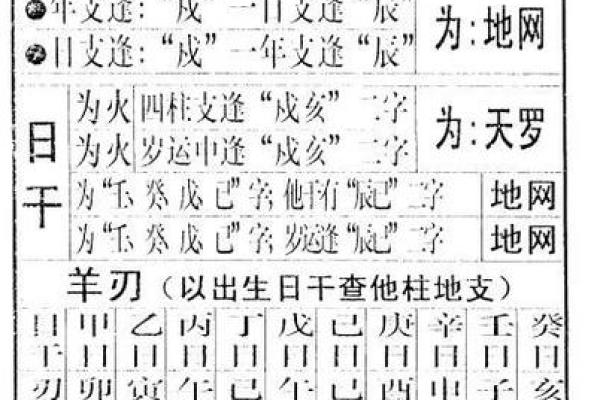 年支逢：“戍”一日支逢“辰”
日支逢：“戍”一年支逢“辰”
为：地网
日干
为火 四柱支逢“戍亥”二字
为火 岁运中逢“戍亥”二字
为：天罗
为“壬、癸、戊、己”字，他干有“辰巳”二字 地网
为“壬、癸、戊、己”字，岁运逢“辰巳”二字 地网
羊刃（以出生日干查他柱地支）
日干 甲日 乙日 丙日 丁日 戊日 己日 庚日 辛日 壬日 癸日
刃 卯 寅 午 巳 午 巳 酉 申 子 亥